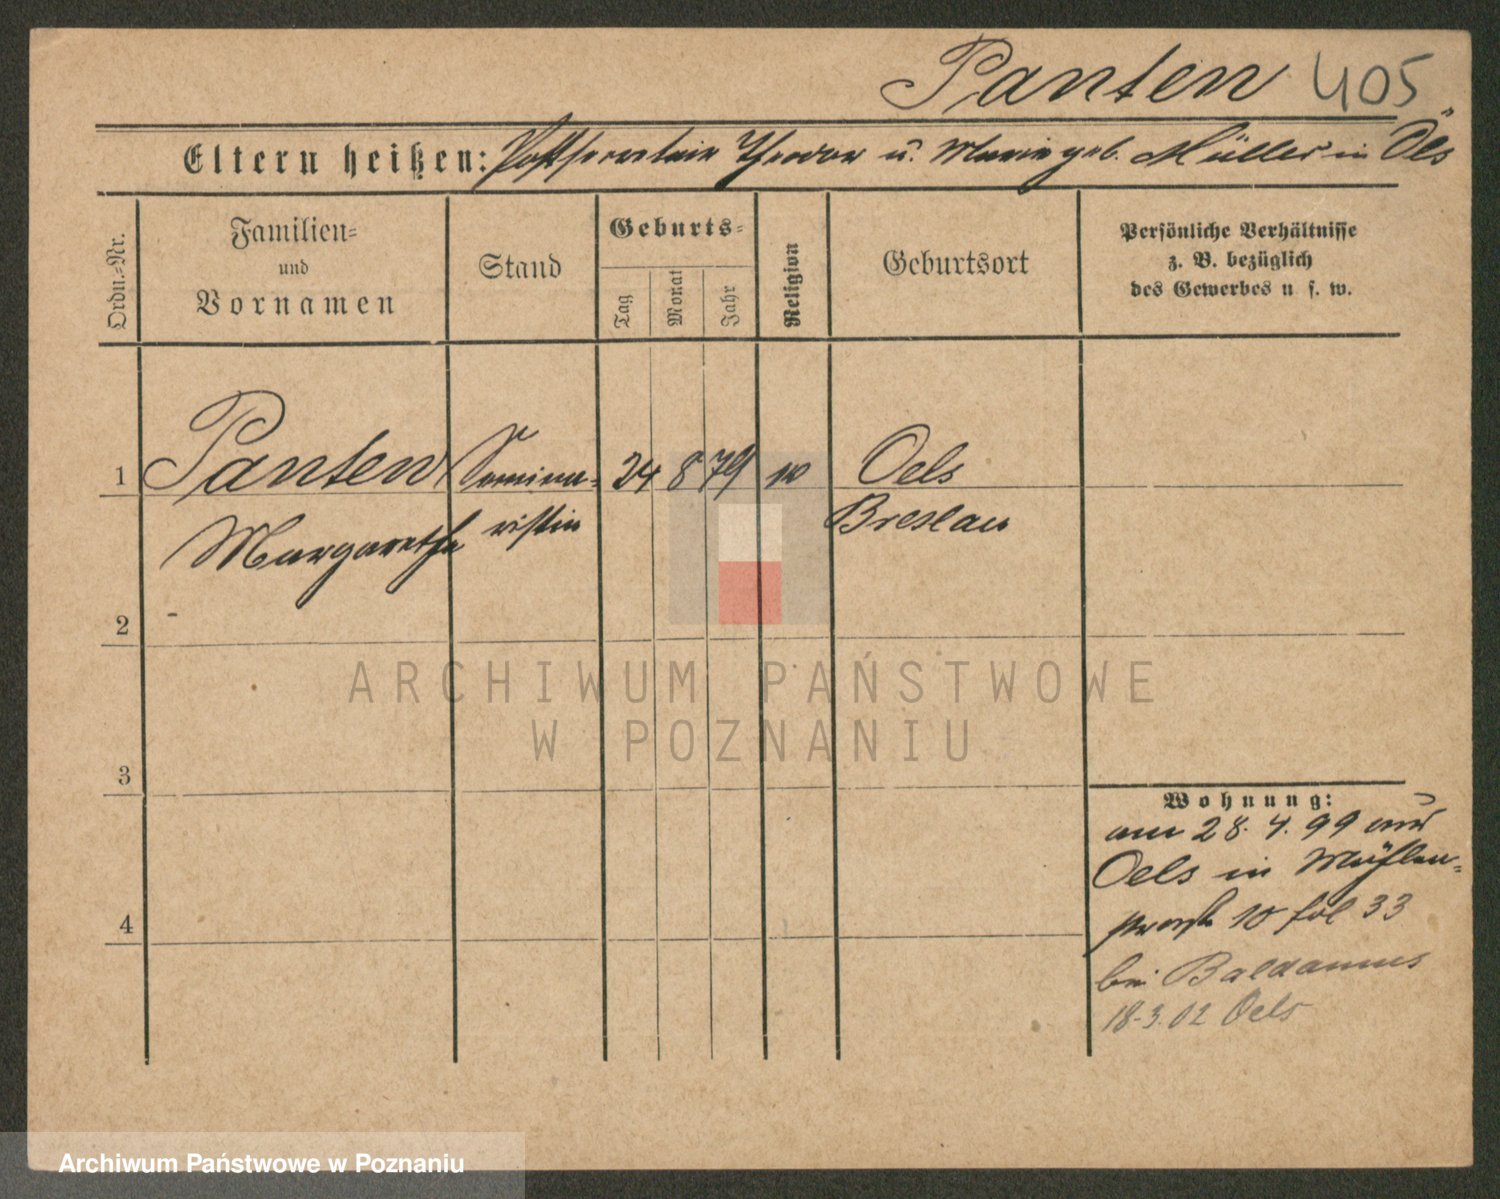 Panten 405
Eltern heißen: Postsecretair Theodor u. Marie geb. Müller in Öls
Ordn.-Nr.
Familien-
und
Vornamen
Stand
Geburts-
Tag
Monat
Jahr
Religion
Geburtsort
Persönliche Verhältnisse
z. B. bezüglich
des Gewerbes u. s. w.
1 Panten Semina- 24 8 79 Oels
Margarethe ristin Breslau
2
3
4
Wohnung:
am 28. 4. 99 aus
Oels in Mühlen-
straße 10 fol 33
bei Baldamus
18.3.02 Oels
ARCHIWUM PAŃSTWOWE
W POZNANIU
Archiwum Państwowe w Poznaniu